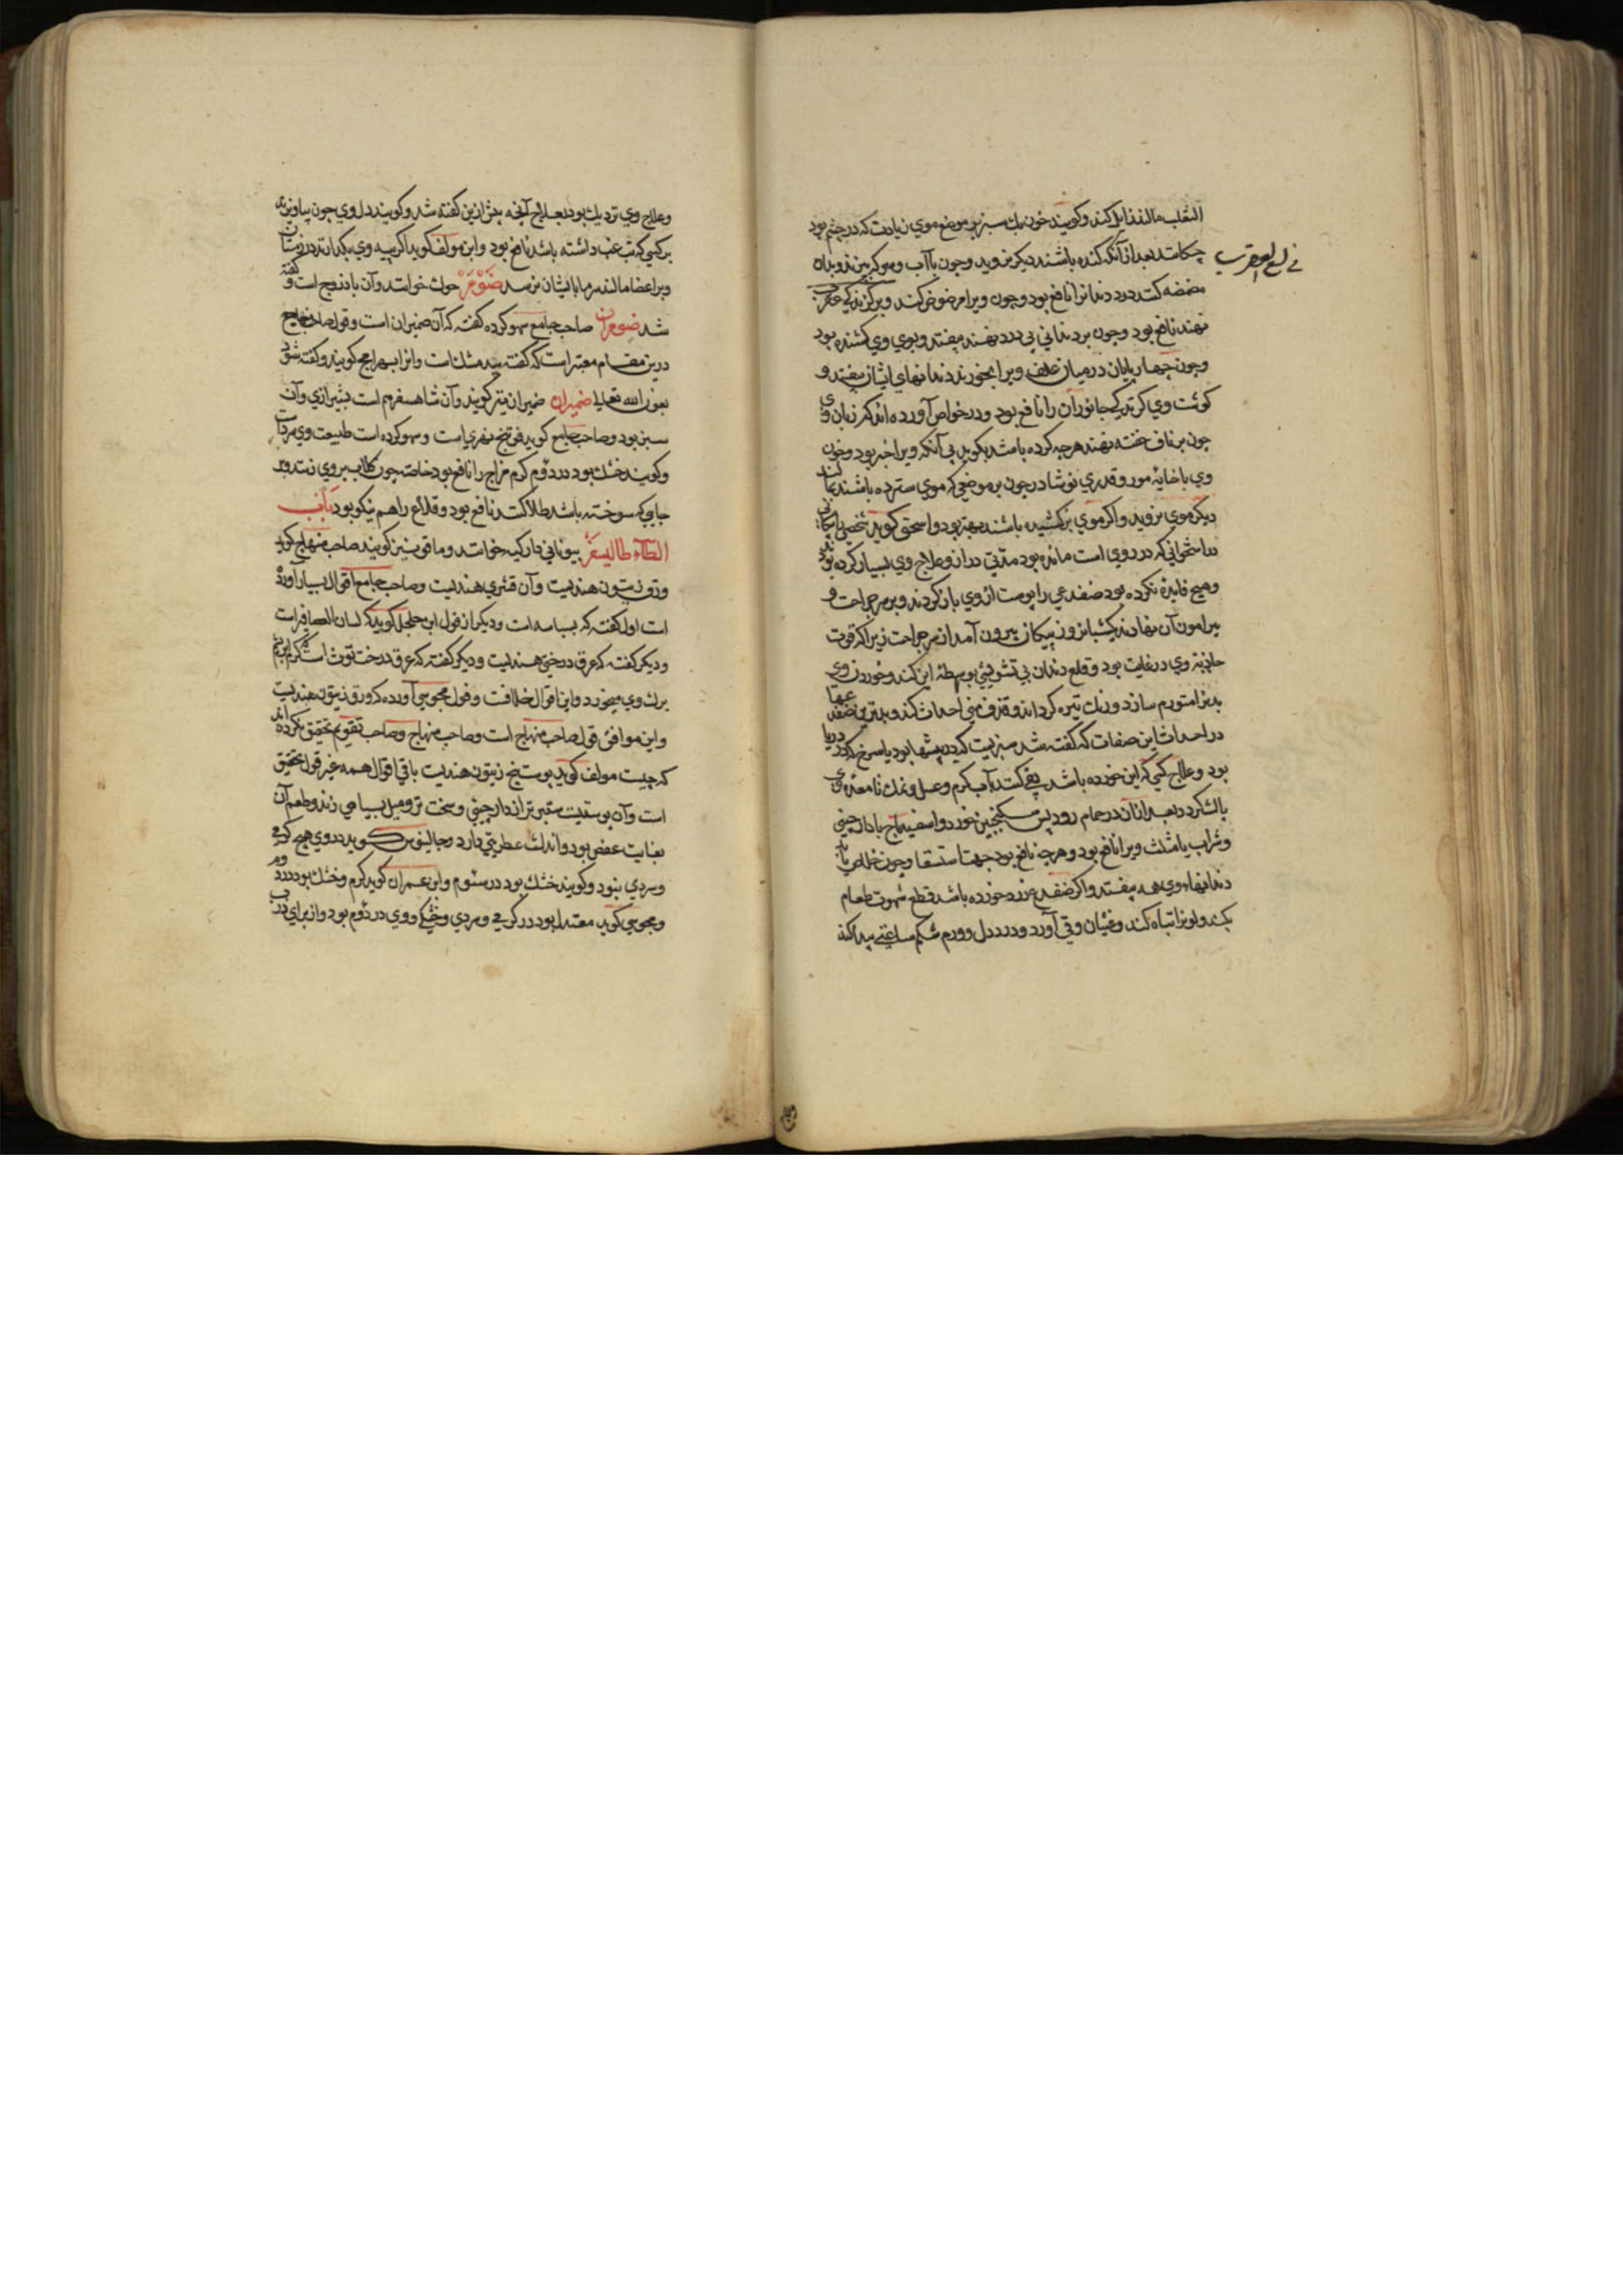 الثعلب مالند زایل کند و کویند خون سبز بر موضع موی زیادت که در چشم بود
چکانند بعد از آنکه کنده باشند دیکر نروید و چون با آب و سرکه بپزند و بدان
فی لسع العقرب
مضمضه کنند درد دندانرا نافع بود و چون ویرا مرضوض کنند و بر کزندکی عقرب
نهند نافع بود و چون بر دندانی بی درد نهند بیفتد و بوی وی کشنده بود
و چون چهار پایان در میان علف ویرا بخورند دندانهای ایشان بیفتد و
کوشت وی کزندکی جانوران را نافع بود و در خواص آورده اند که زبان وی
چون بر ناف خفته نهند هر چه کرده باشد بکوید بی آنکه ویرا خبر بود و خون
وی با خایه مور و قدری نوشادر چون بر موضعی که موی سترده باشند طلا کنند
دیکر موی نروید و اکر موی برکشیده باشند بهتر بود و اسحق کوید شخصی را پیکانی
در استخوانی که در روی است مانده بود مدتی دراز و علاج وی بسیار کرده بود
و هیچ فایده نکرده بود ضفدعی را پوست از وی باز کردند و بر سر جراحت و
پیرامون آن نهادند یکشبانروز پیکان بیرون آمد از سر جراحت زیرا که قوت
جاذبه وی در غایت بود و قلع دندان بی تشویش بواسطه این کند و خوردن وی
بدنرا متورم سازد و رنک تیره کرداند و قذف منی احداث کند و بدترین ضفدعها
در احداث این صفات که کفته شد سبزیست که در بیشها بود یا سرخ که در دریا
بود و علاج کسی که این خورده باشد قی کنند بآب کرم و عسل و نمک تا معده وی
پاک کردد و بعد از آن در حمام رود پس سکنجبین خورد و اسفیدباج با دارچینی
و شراب یا مثلث ویرا نافع بود و هر چه نافع بود جهت استسقا و چون خلاص یابد
دندانهاء وی همه بیفتد و اکر ضفدع زرد خورده باشد قطع شهوت طعام
بکند و لونرا تباه کند و غثیان و قی آورد و درد دل و ورم شکم ساعتی پیدا کند
و علاج وی نزدیک بود بعلاج آنچه پیش ازین کفته شد و کویند دل وی چون بیاویزند
بر کسی که تب غب داشته باشد نافع بود و ابن مولف کوید اکر پیه وی بکدازند در زمستان
و بر اعضا مالند سرما بایشان نرسد ضومر حوک خوانند و آن بادروج است و کفته
شد ضومران صاحب جامع سهو کرده کفته که آن ضمیران است و قول صاحب جامع
درین مقام معتبر است که کفته بید مشک است و آنرا بهرامج کویند و کفته شود
بعون الله تعالی ضمیران ضیمران نیز کویند و آن شاهسفرم است بشیرازی و آن
سبز بود و صاحب جامع کوید فوتنج نهری است و سهو کرده است طبیعت وی سرد است
و کویند خشک بود در دوم کرم مزاج را نافع بود خاصه چون کلاب بروی زنند و بر
جایی که سوخته باشد طلا کنند نافع بود و قلاع را هم نیکو بود باب
الطاء طالیسفر بیونانی دارکیسه خوانند و ماقر نیز کویند صاحب منهاج کوید
ورق زیتون هندیست و آن قشری هندیست و صاحب جامع اقوال بسیار آورده
است اول کفته که بسباسه است و دیکر از قول ابن جلجل کوید که لسان العصافیر است
و دیکر کفته که عرق درختی هندیست و دیکر کفته که عرق درخت توث است که کرم ابریشم
برک وی میخورد و این اقوال خلافت و قول مجوسی آورده که ورق زیتون هندیست
و این موافق قول صاحب منهاج است و صاحب منهاج و صاحب تقویم تحقیق نکرده اند
که چیست مولف کوید پوست بیخ زیتون هندیست باقی اقوال همه غیر قول تحقیق
است و آن پوستیست ستبر تر از دارچینی و سخت تر و میل بسیاهی زند و طعم آن
بغایت عفص بود و اندک عطریتی دارد و جالینوس کوید در وی هیچ کرمی
و سردی نبود و کویند خشک بود در سئوم و ابن عمران کوید کرم و خشک بود در دوم
و مجوسی کوید معتدل بود در کرمی و سردی و خشکی وی در دوم بود و از برای درب